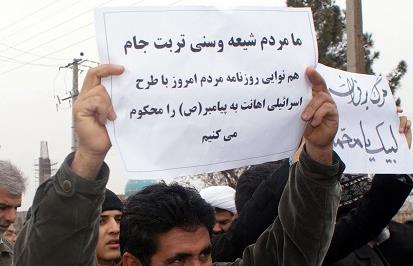 ما مردم شیعه وسنی تربت جام
هم نوایی روزنامه مردم امروز با طرح
اسرائیلی اهانت به پیامبر(ص) را محکوم
می کنیم
مرگ بر
لبیک یا محمد